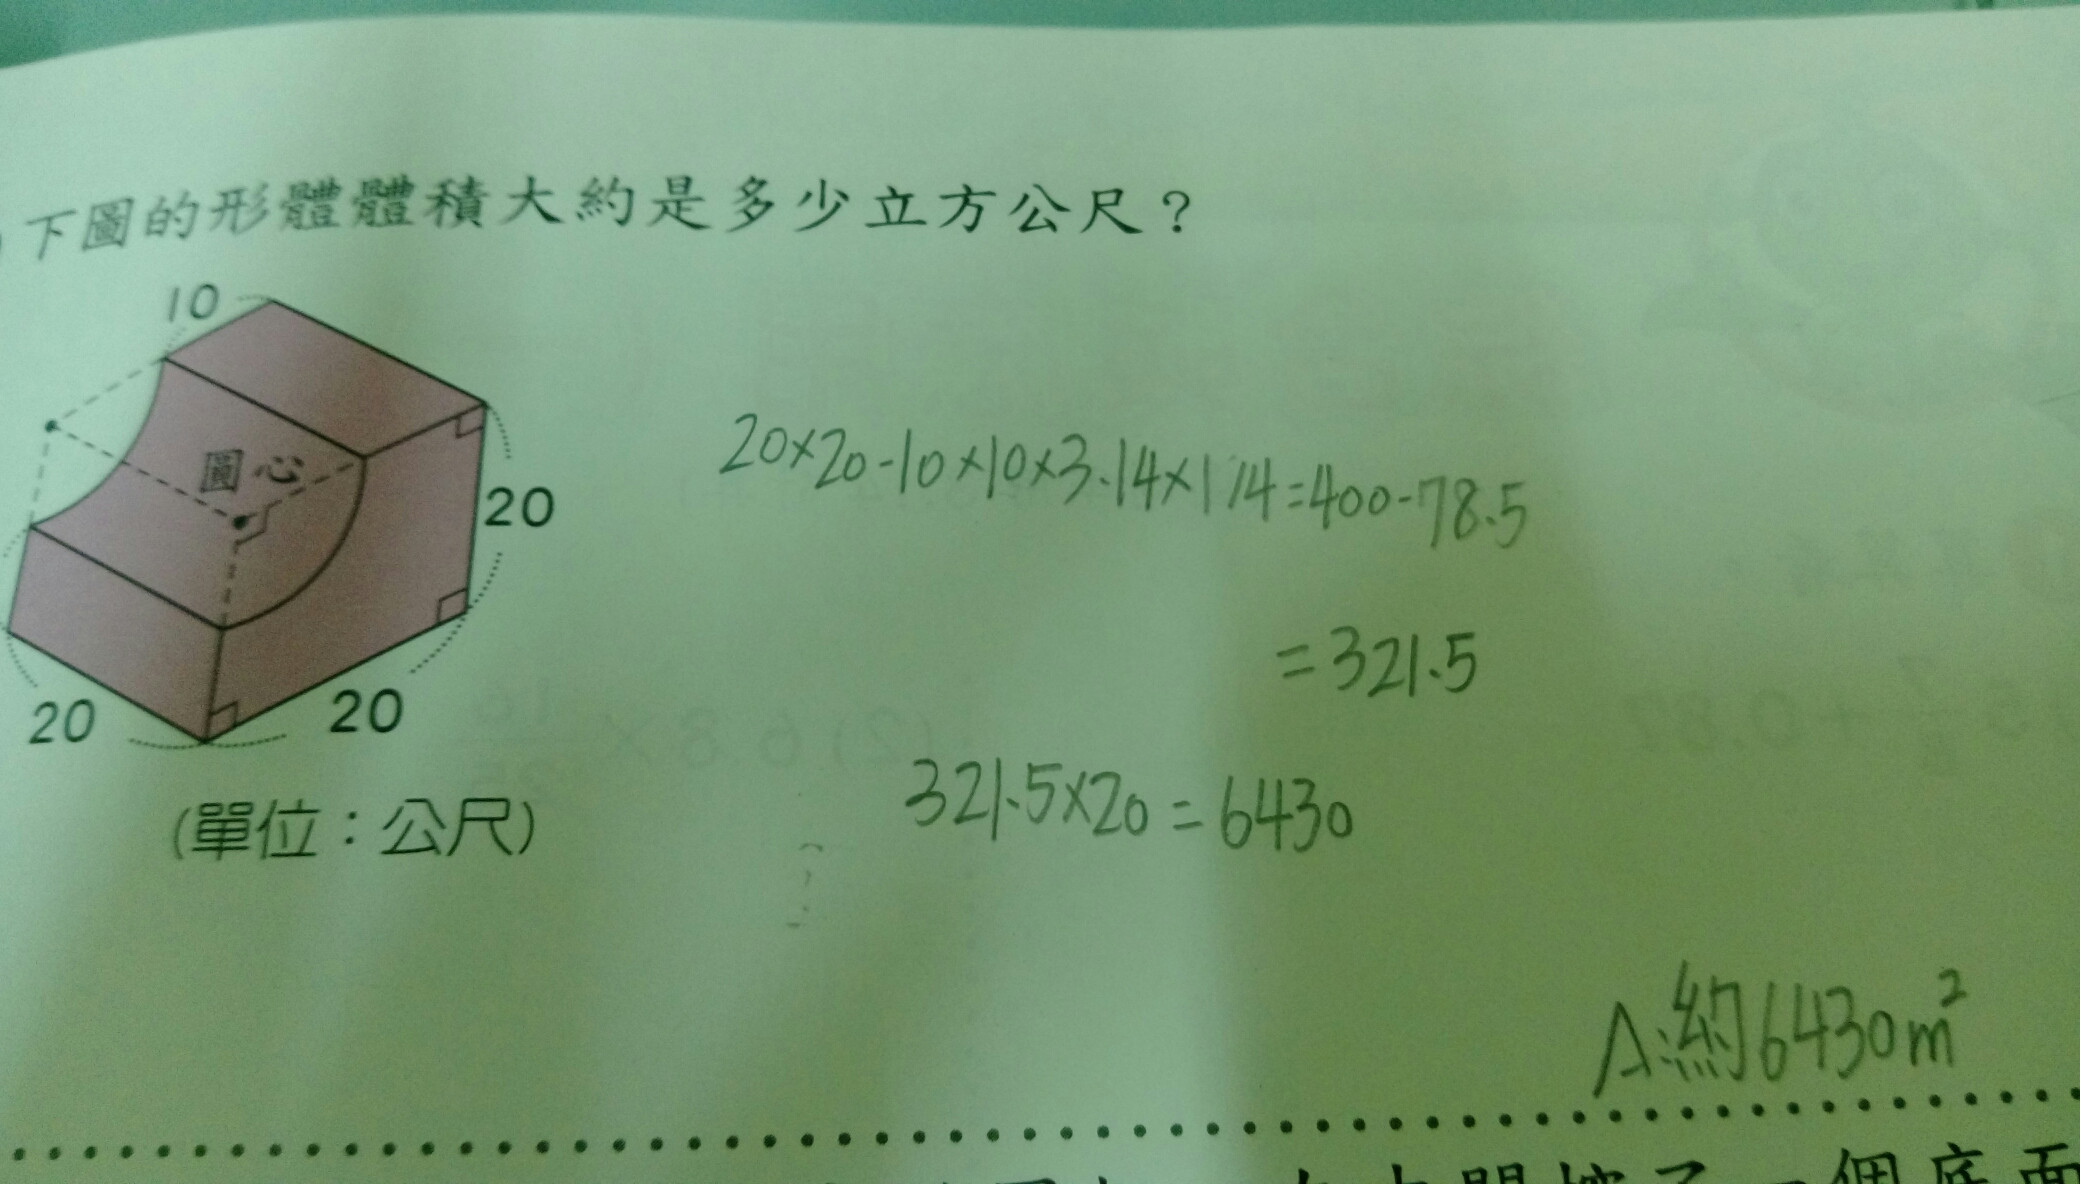 下圖的形體體積大約是多少立方公尺？
10
圓心
20
20
20
(單位：公尺)
20×20-10×10×3.14×1/4=400-78.5
=321.5
321.5×20=6430
A:約6430m²
個底面